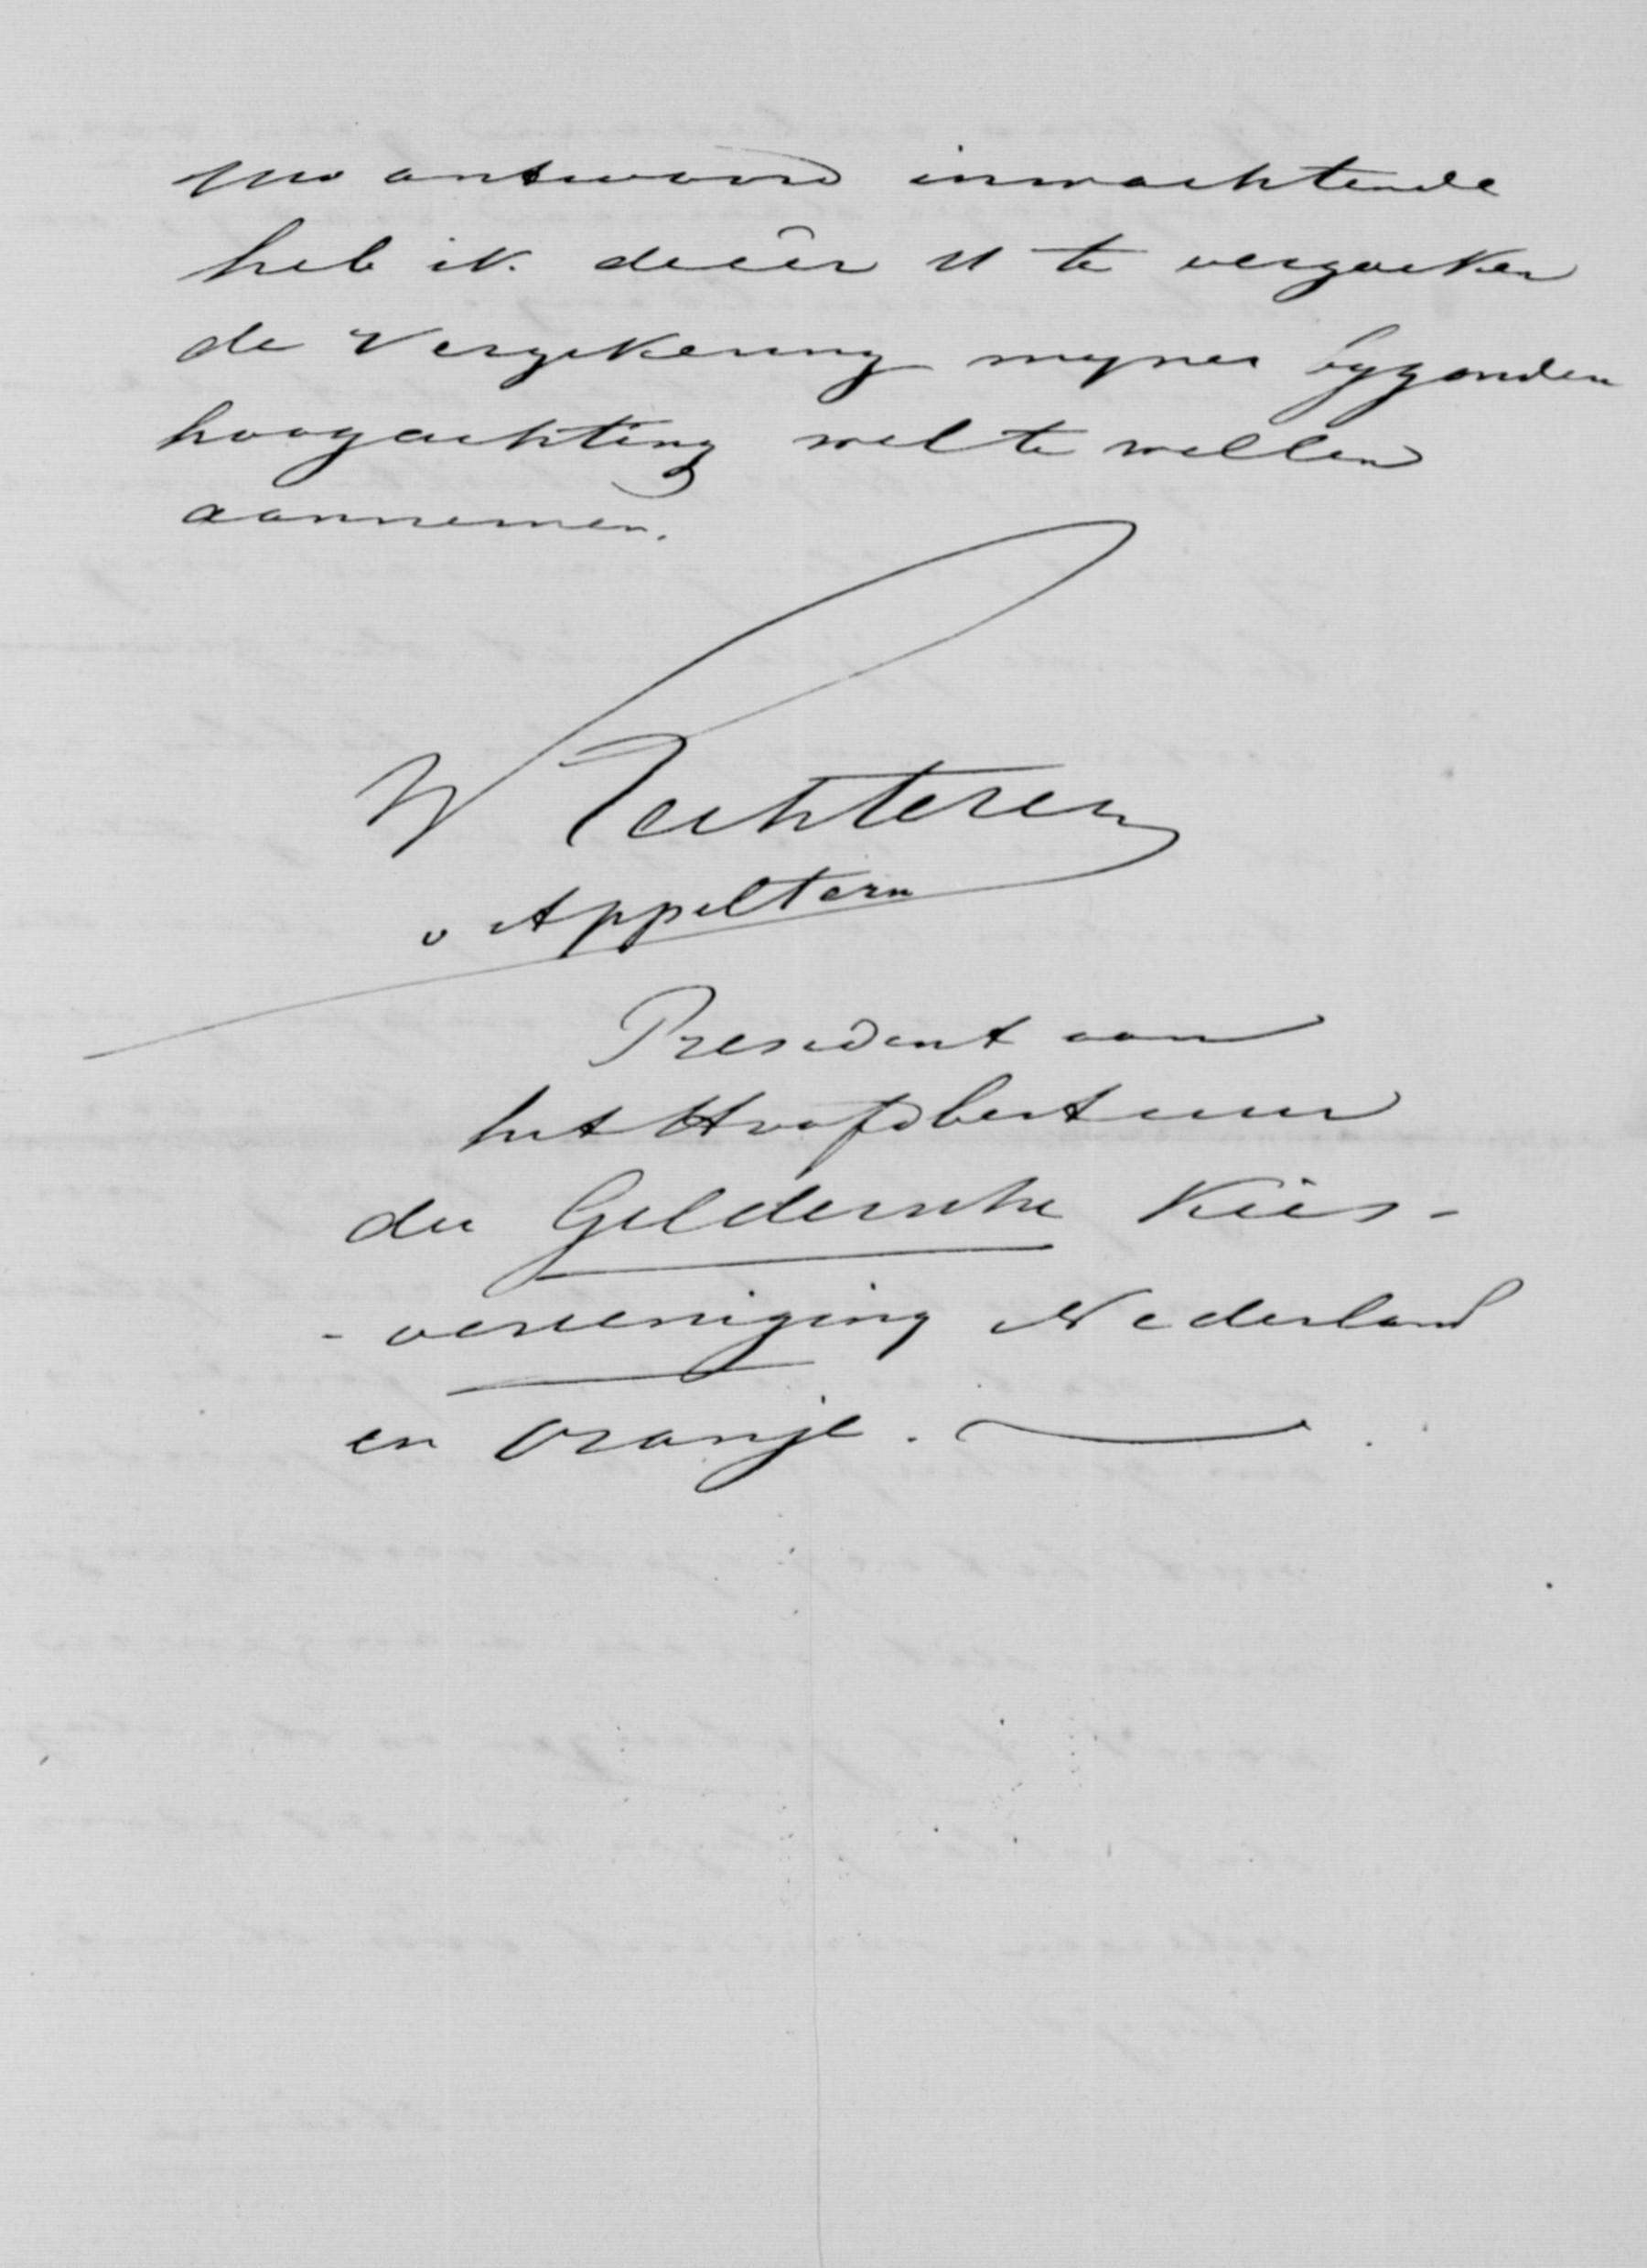 Uw antwoord inwachtende
heb ik de eêr U te verzoeken
de Verzekering mijner byzondere
hoogachting wel te willen
aannemen.
W Rechteren
v Appeltern
President van
het Hoofdbestuur
der Geldersche Kies-
- vereeniging Nederland
en Oranje.